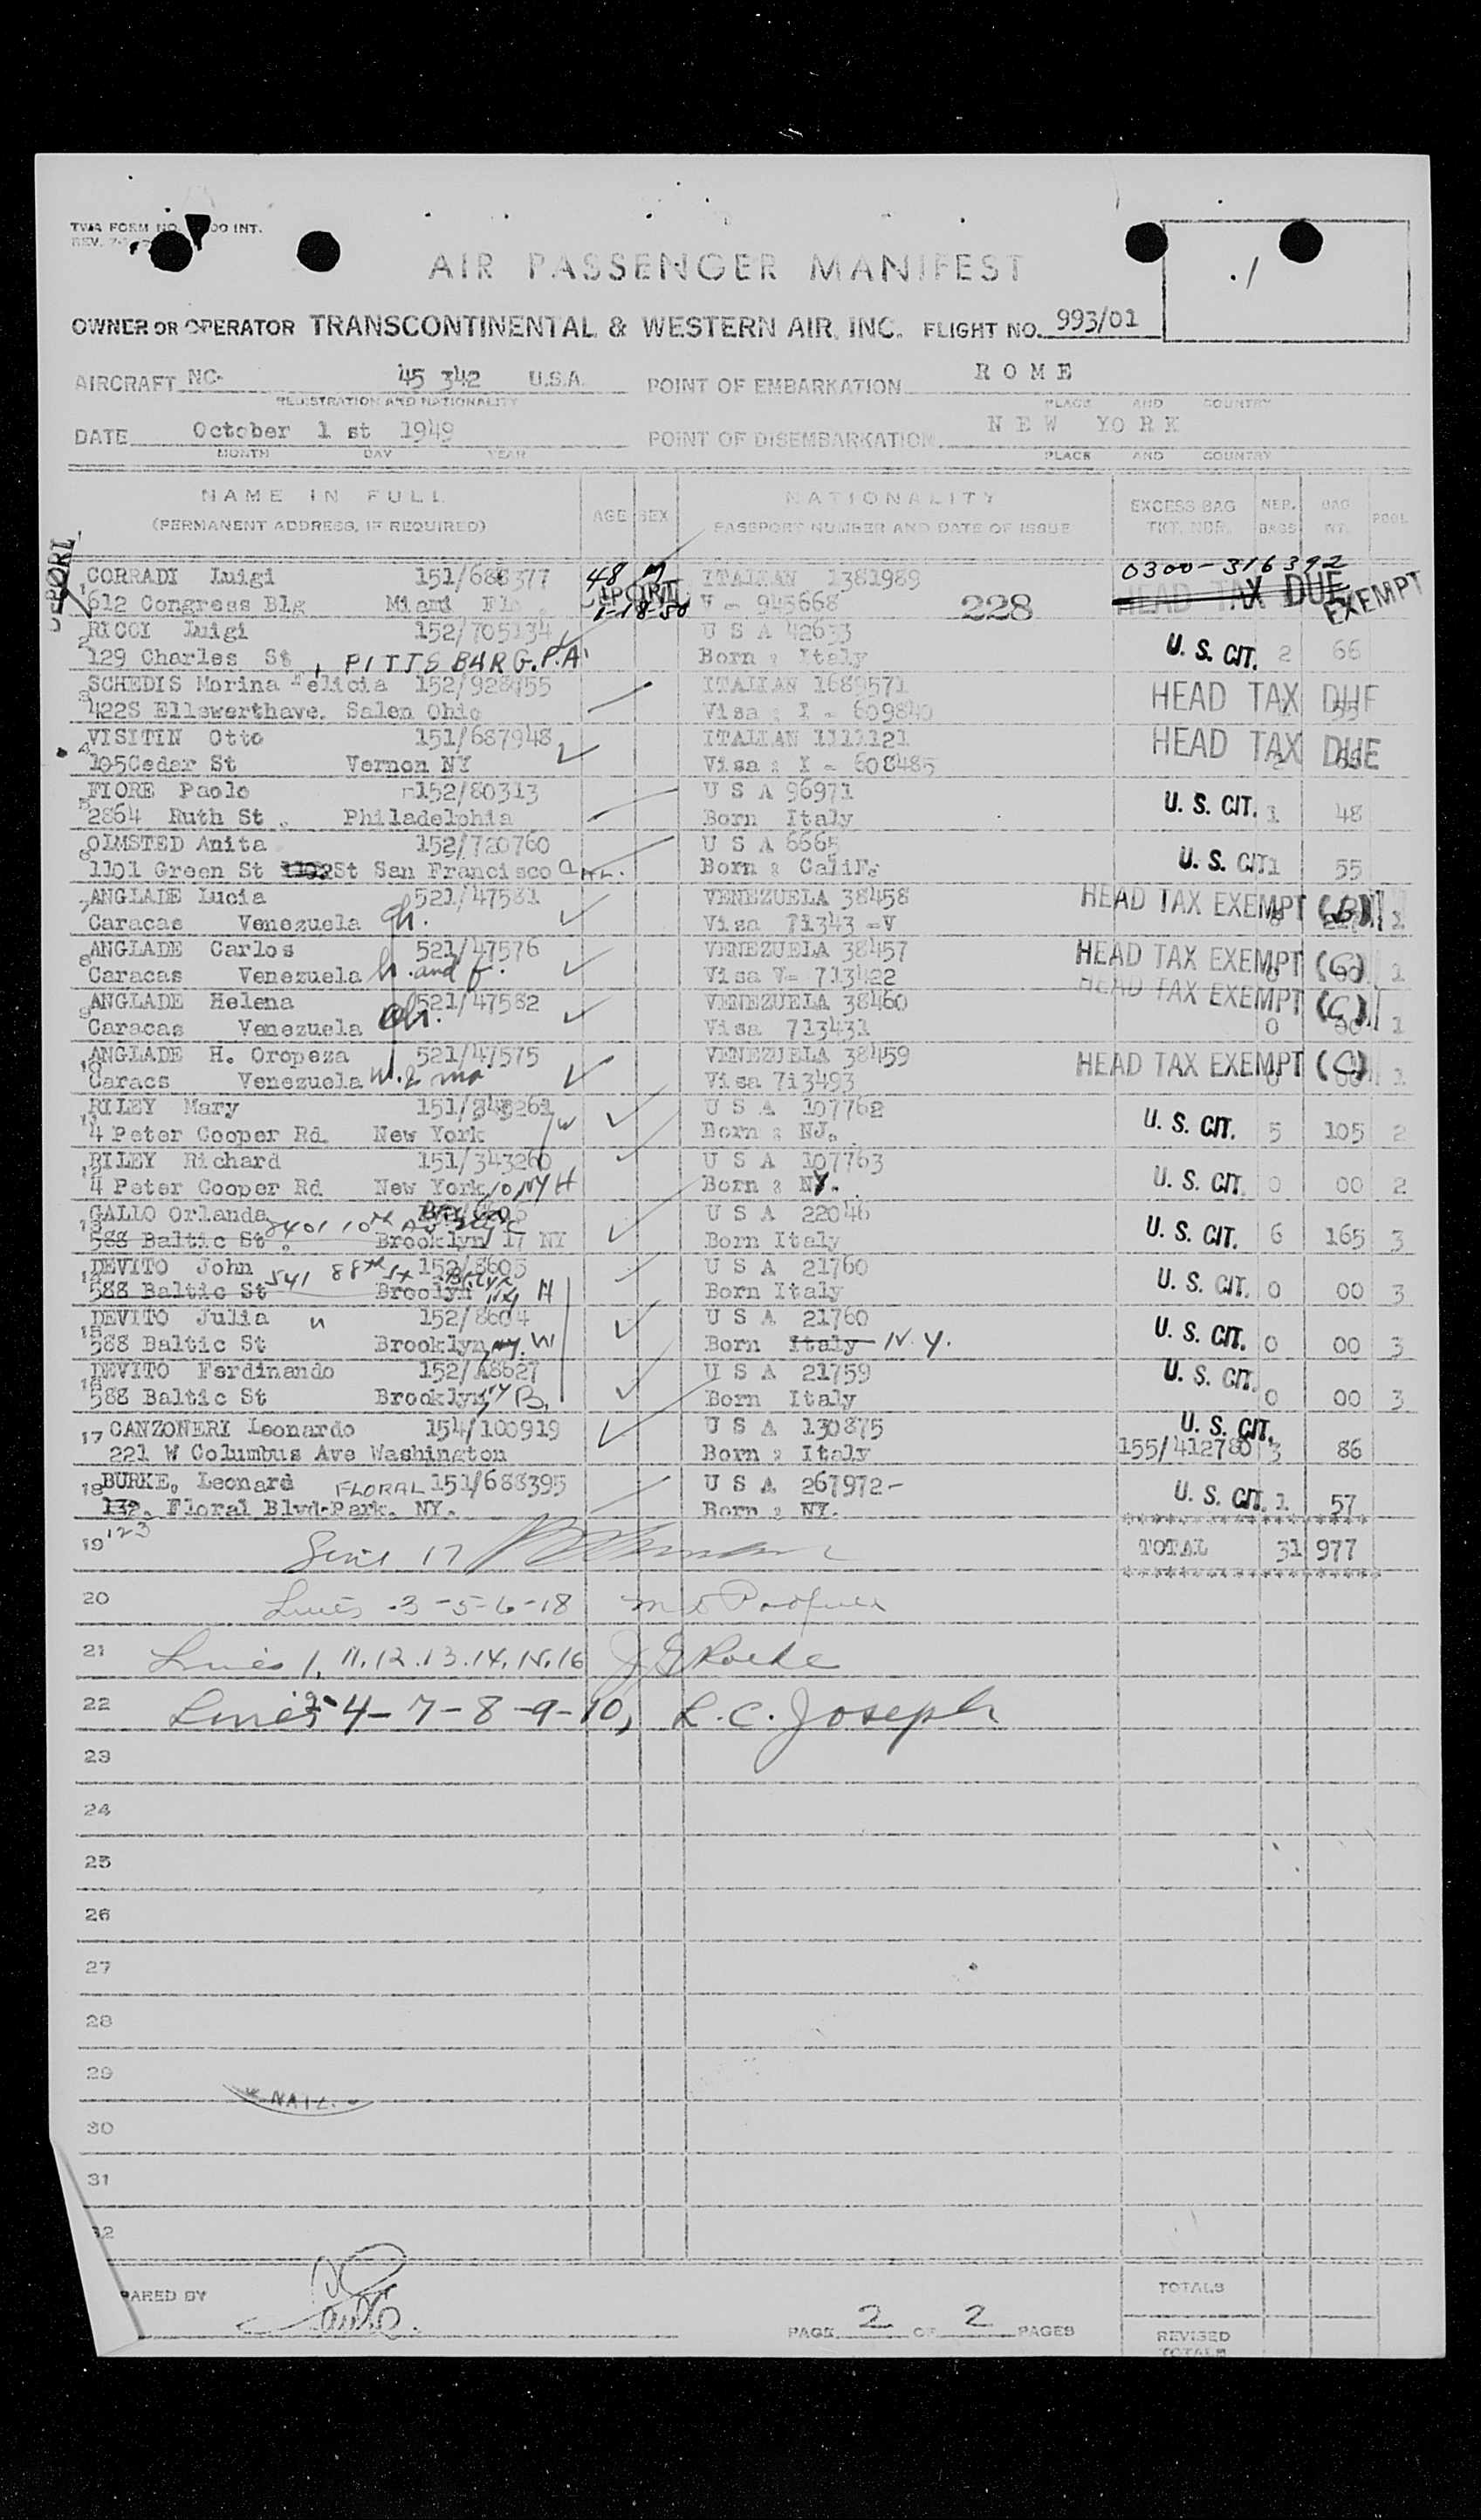 TWA FORM NO. 00 INT.
REV.
AIR PASSENGER MANIFEST
OWNER OR OPERATOR TRANSCONTINENTAL & WESTERN AIR, INC. FLIGHT NO. 993/01
AIRCRAFT NC- 45 342 U.S.A. POINT OF EMBARKATION ROME
REGISTRATION AND NATIONALITY PLACE AND COUNTRY
DATE October 1 st 1949 POINT OF DISEMBARKATION NEW YORK
MONTH DAY YEAR PLACE AND COUNTRY
NAME IN FULL AGE SEX NATIONALITY EXCESS BAG NBR. BAG POOL
(PERMANENT ADDRESS, IF REQUIRED) PASSPORT NUMBER AND DATE OF ISSUE TKT. NBR. BAGS WT.
0300-316392
1 CORRADI Luigi 151/688377 48 M ITALIAN 1381989 HEAD TAX DUE EXEMPT
612 Congress Blg Miami Fla 1-18-50 V - 945668 228
2 RICCI Luigi 152/705134 U S A 42633 U. S. CIT. 2 66
129 Charles St, PITTSBURG. P.A. Born : Italy
3 SCHEDIS Morina Felicia 152/928455 ITALIAN 1689571 HEAD TAX DUE
422S Ellswerthave. Salen Ohio Visa : I - 609840
4 VISITIN Otto 151/687948 ITALIAN 1111121 HEAD TAX DUE
105Cedar St Vernon NY Visa : I - 608485
5 FIORE Paolo 152/80313 U S A 96971 U. S. CIT. 1 48
2864 Ruth St. Philadelphia Born Italy
6 OLMSTED Anita 152/720760 U S A 6665 U. S. CIT. 1 55
1101 Green St St San Francisco Born : CaliF.
7 ANGLADE Lucia 521/47581 VENEZUELA 38458 HEAD TAX EXEMPT 1
Caracas Venezuela ch. Visa 71343 -V
8 ANGLADE Carlos 521/47576 VENEZUELA 38457 HEAD TAX EXEMPT (C) 1
Caracas Venezuela h. and f. Visa V- 713422
9 ANGLADE Helena 521/47582 VENEZUELA 38460 HEAD TAX EXEMPT (C) 1
Caracas Venezuela ch. Visa 713431 0
10 ANGLADE H. Oropeza 521/47575 VENEZUELA 38459 HEAD TAX EXEMPT (C) 1
Caracs Venezuela W. & mo. Visa 7i3493
11 RILEY Mary U S A 107762 U. S. CIT. 5 105 2
4 Peter Cooper Rd. New York W Born : NJ.
12 RILEY Richard 151/343260 U S A 107763 U. S. CIT. 0 00 2
4 Peter Cooper Rd New York 10 NY H Born : NY.
13 GALLO Orlanda U S A 22046 U. S. CIT. 6 165 3
588 Baltic St. 8401 10th Av Brooklyn 17 NY Born Italy
14 DEVITO John 152/8605 U S A 21760 U. S. CIT. 0 00 3
588 Baltic St 541 88th St Brooklyn NY H Born Italy
15 DEVITO Julia " 152/8604 U S A 21760 U. S. CIT. 0 00 3
588 Baltic St Brooklyn, NY. W Born Italy N. Y.
16 DEVITO Ferdinando 152/A8627 U S A 21759 U. S. CIT. 0 00 3
588 Baltic St Brooklyn NY B. Born Italy
17 CANZONERI Leonardo 154/100919 U S A 130875 U. S. CIT.
221 W Columbus Ave Washington Born : Italy 155/412780 3 86
18 BURKE, Leonard FLORAL 151/688395 U S A 267972- U. S. CIT. 1 57
132. Floral Blvd-Park. NY. Born : NY.
123
19 Line 17 TOTAL 31 977
20 Lines -3-5-6-18
21 Lines 1, 11, 12. 13. 14, 15, 16
22 Lines 2-4-7-8-9-10, L. C. Joseph
23
24
25
26
27
28
29
NAIL
30
31
32
PARED BY TOTALS
PAGE 2 OF 2 PAGES REVISED
TOTALS